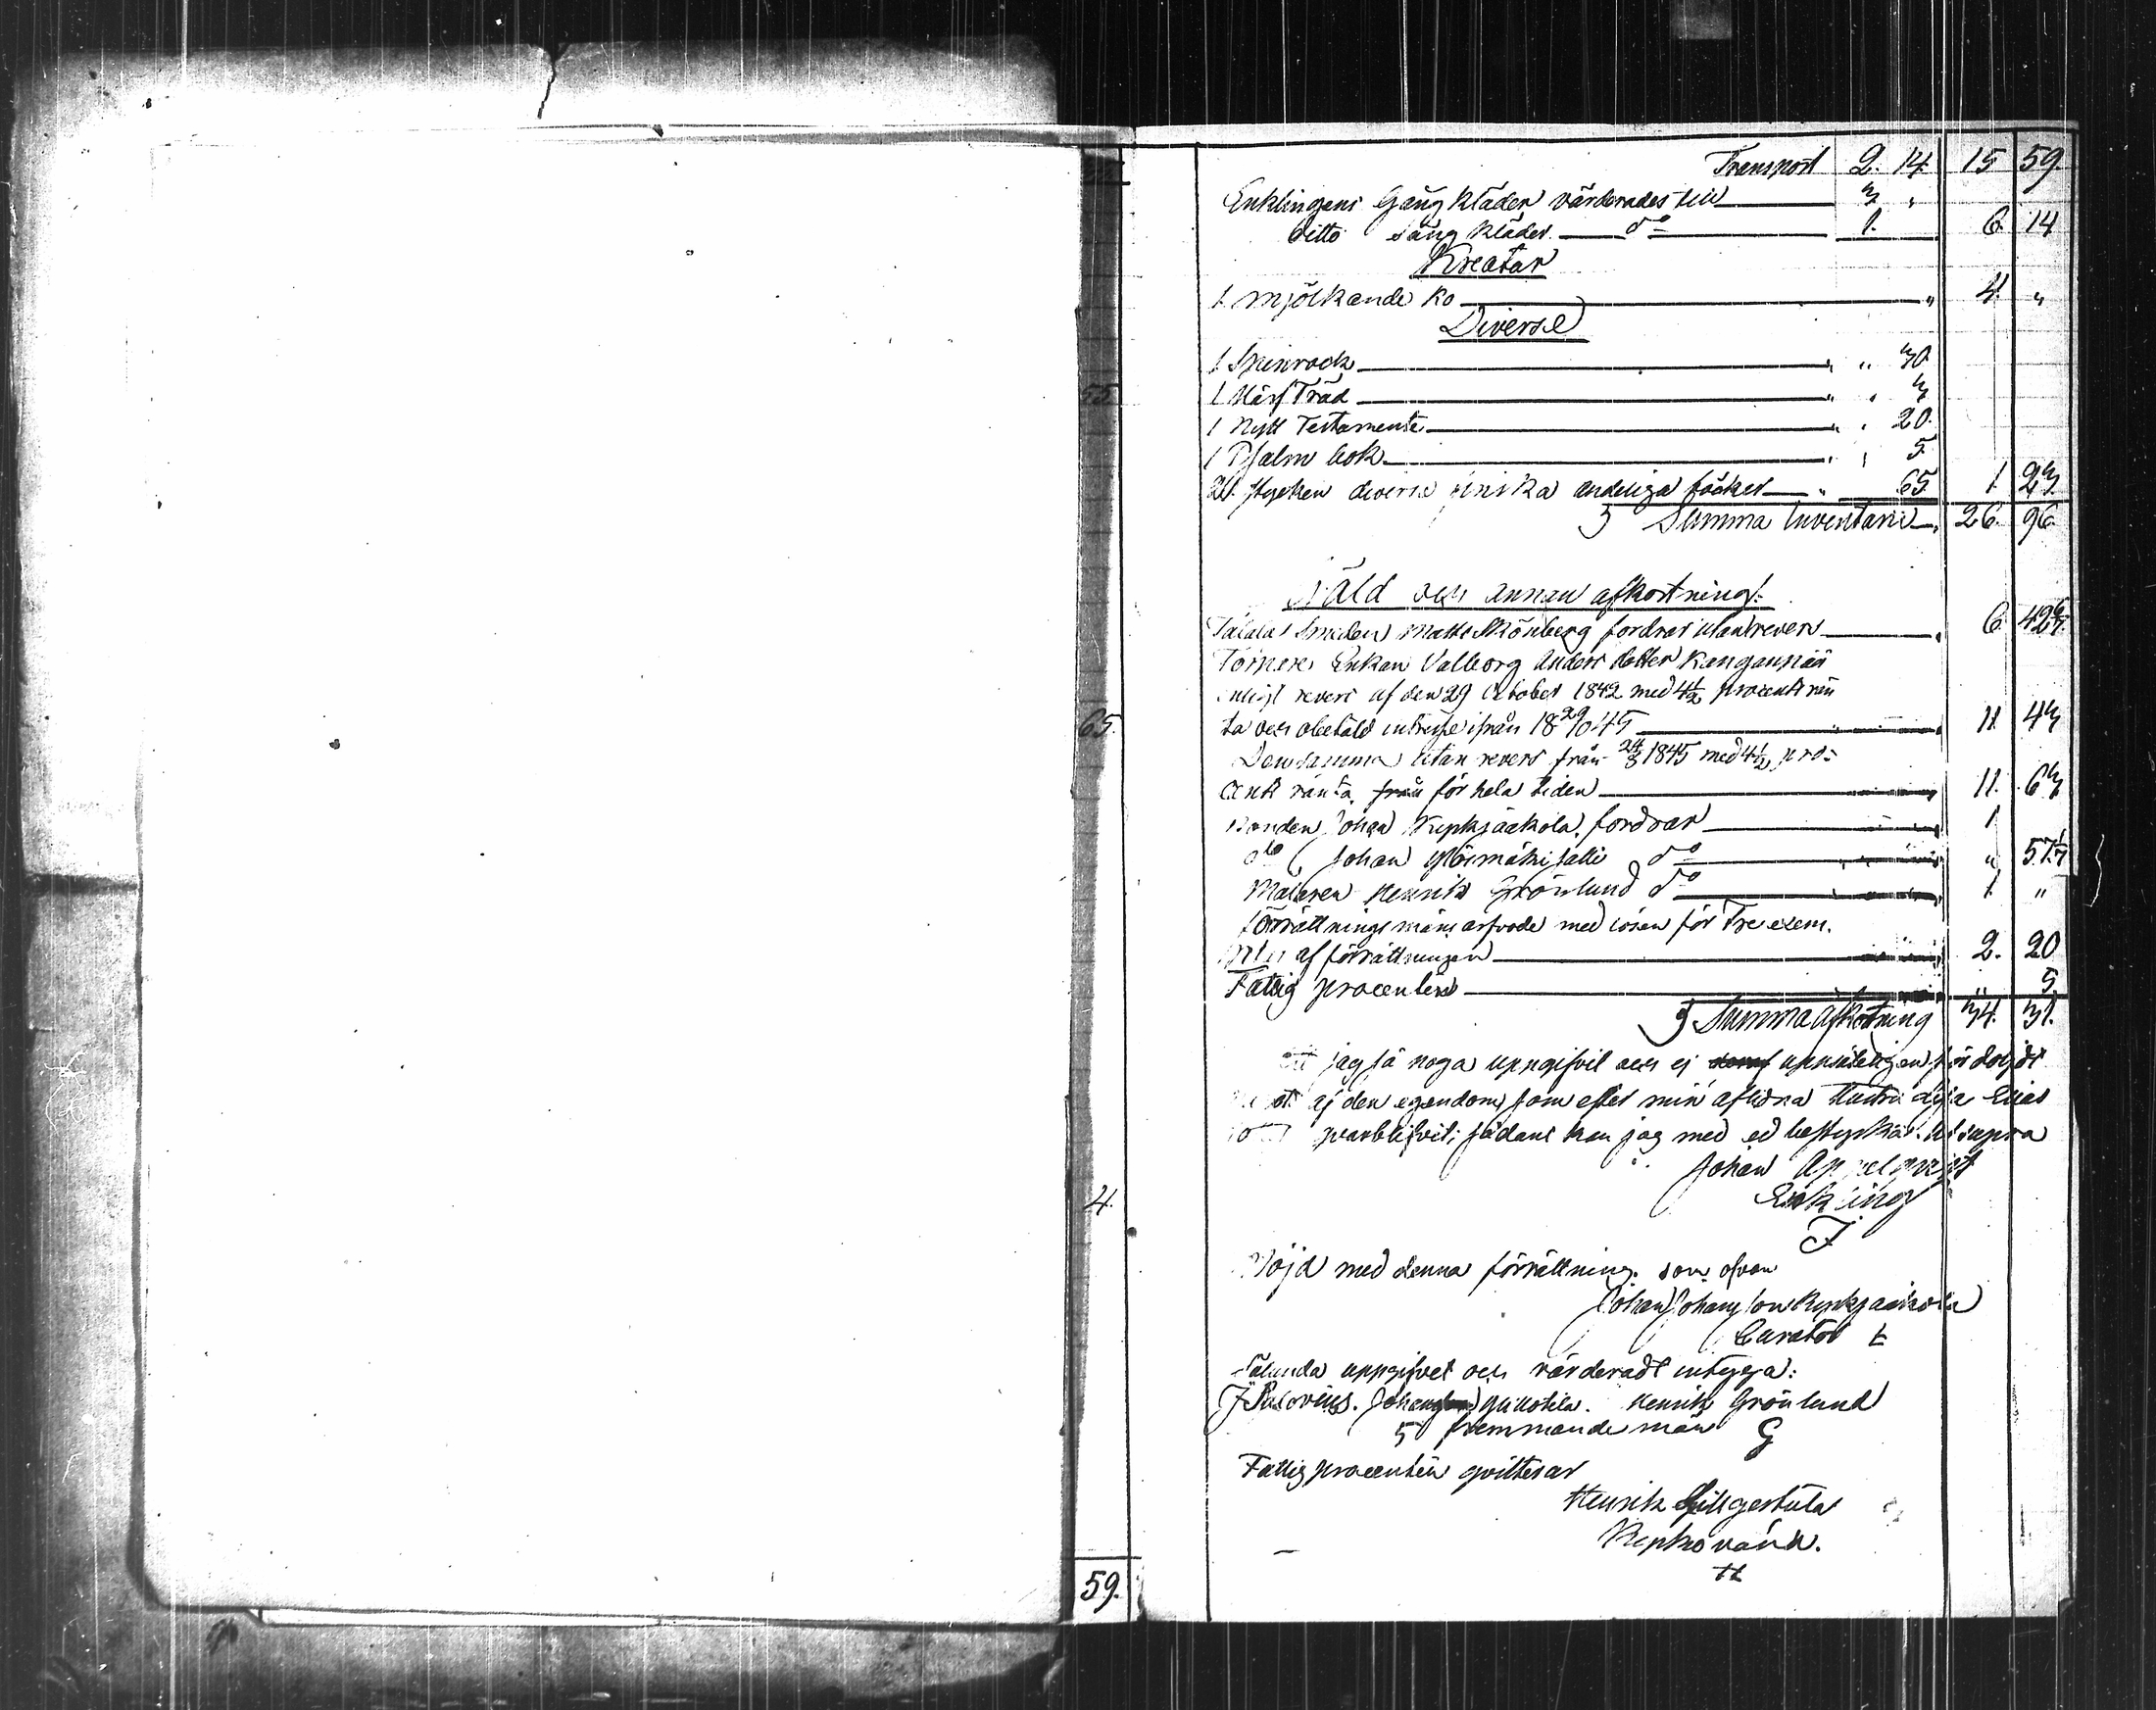 Transport 2. 14. 15 59.
Enklingens Gångkläder värderades till 3 "
ditto säng kläder do 1. 6. 14
Kreatur
1 mjölkande ko " 4. "
Diverse
1 Spinrock " " 30.
1 Träd " " 3
1 Nytt Testamente " " 20.
1 Psalm bok " " 5.
stycken diverse finska andeliga böcker " 65. 1. 23.
Summa Inventarii 26. 96.
Gäld och annan afkortning.
Smeden Matts Skönberg fordrar utan revers 6 42
Enkan Valborg Anders dotter Kanganpää
enligt revers af den 29 October 1842 med 4½ procents rän
ta och obetald intresse ifrån 18 29/10 45 11. 43
Densamma utan revers från 24/3 1845 med 4½ pro=
cents ränta för hela tiden 11. 63
Bonden Johan Kepkjääkola fordrar 1
do Johan do " 57
Målaren Henrik Grönlund do 1. "
Förrättnings mäns arfvode med lösen för Tre exem.
plar af förrättningen 2. 20
Fattig procenten " 5.
Summa afkortning 34. 31.
att jag så noga uppgifvit och ej uppsåteligen fördoljdt
ej den egendom som efter min aflidna Hustru
qvarblifvit; sådant kan jag med ed bestyrka. Ut supra
Johan Appelqvist
Enkling
Nöjd med denna förrättning. som ofvan
Johan Johansson Kepkjääkola
Curator
Sålunda uppgifvet och värderadt intyga:
Johan Henrik Grönlund
5 fremmande män G
Fattigprocenten qvitterar
Henrik
55.
65.
4.
59.